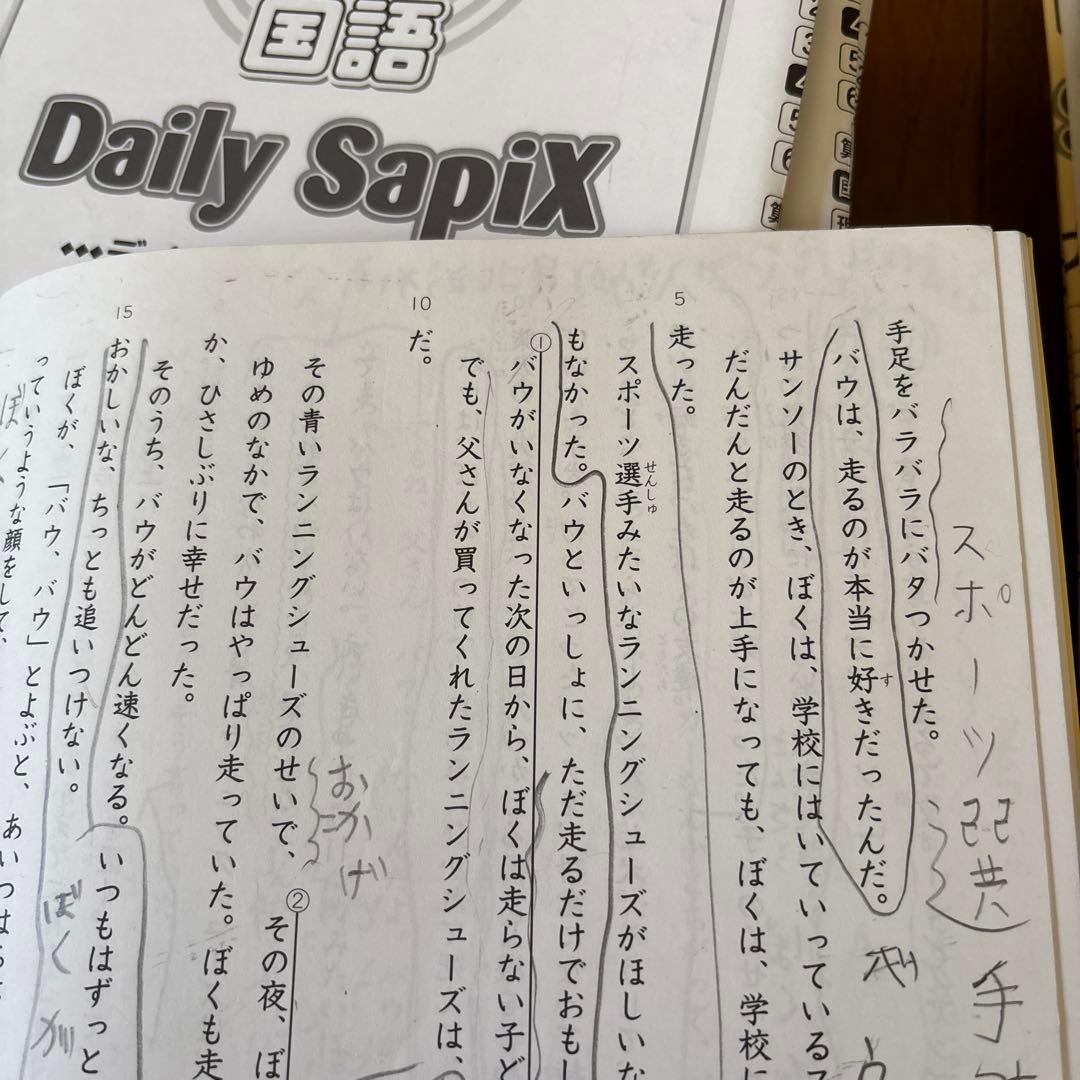 国語
Daily SapiX
5
10
15
手足をバラバラにバタつかせた。
バウは、走るのが本当に好きだったんだ。
す
サンソーのとき、ぼくは、学校にはいていっている
だんだんと走るのが上手になっても、ぼくは、学校に
走った。
スポーツ選手みたいなランニングシューズがほしいな
せんしゅ
もなかった。バウといっしょに、ただ走るだけでおもし
①バウがいなくなった次の日から、ぼくは走らない子ど
でも、父さんが買ってくれたランニングシューズは、
だ。
その青いランニングシューズのせいで、②その夜、ぼ
ゆめのなかで、バウはやっぱり走っていた。ぼくも走
か、ひさしぶりに幸せだった。
そのうち、バウがどんどん速くなる。いつもはずっと
おかしいな、ちっとも追いつけない。
ぼくが、「バウ、バウ」とよぶと、あいつは
っていうような顔をして、
スポーツ選手
おかげ
ぼくが